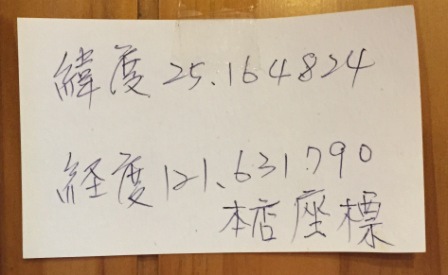 緯度 25.164824
経度 121.631790
本店座標